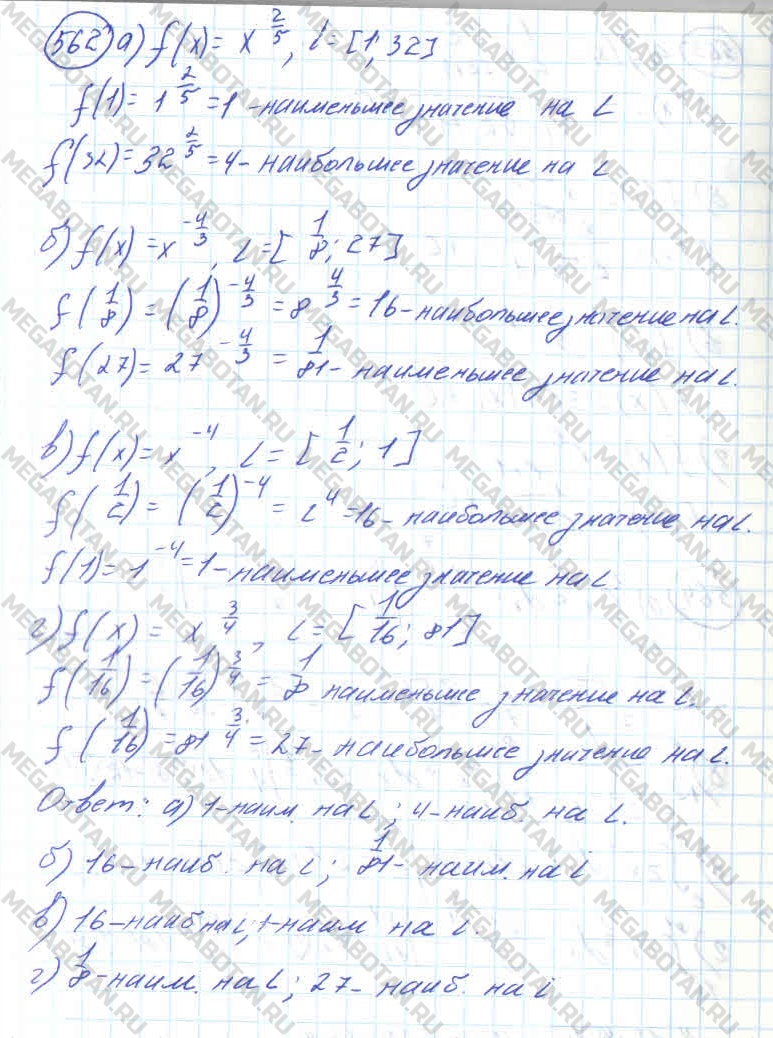 562 а) f(x) = x^(2/5), L = [1; 32]
f(1) = 1^(2/5) = 1 - наименьшее значение на L
f(32) = 32^(2/5) = 4 - наибольшее значение на L
б) f(x) = x^(-4/3), L = [1/8; 27]
f(1/8) = (1/8)^(-4/3) = 8^(4/3) = 16 - наибольшее значение на L.
f(27) = 27^(-4/3) = 1/81 - наименьшее значение на L.
в) f(x) = x^(-4), L = [1/2; 1]
f(1/2) = (1/2)^(-4) = 2^4 = 16 - наибольшее значение на L.
f(1) = 1^(-4) = 1 - наименьшее значение на L.
г) f(x) = x^(3/4), L = [1/16; 81]
f(1/16) = (1/16)^(3/4) = 1/8 наименьше значение на L.
f(1/16) = 81^(3/4) = 27 - наибольшее значение на L.
Ответ: а) 1 - наим. на L; 4 - наиб. на L.
б) 16 - наиб. на L; 1/81 - наим. на L
в) 16 - наиб на L; 1 - наим на L.
г) 1/8 - наим. на L; 27 - наиб. на L
MEGABOTAN.RU